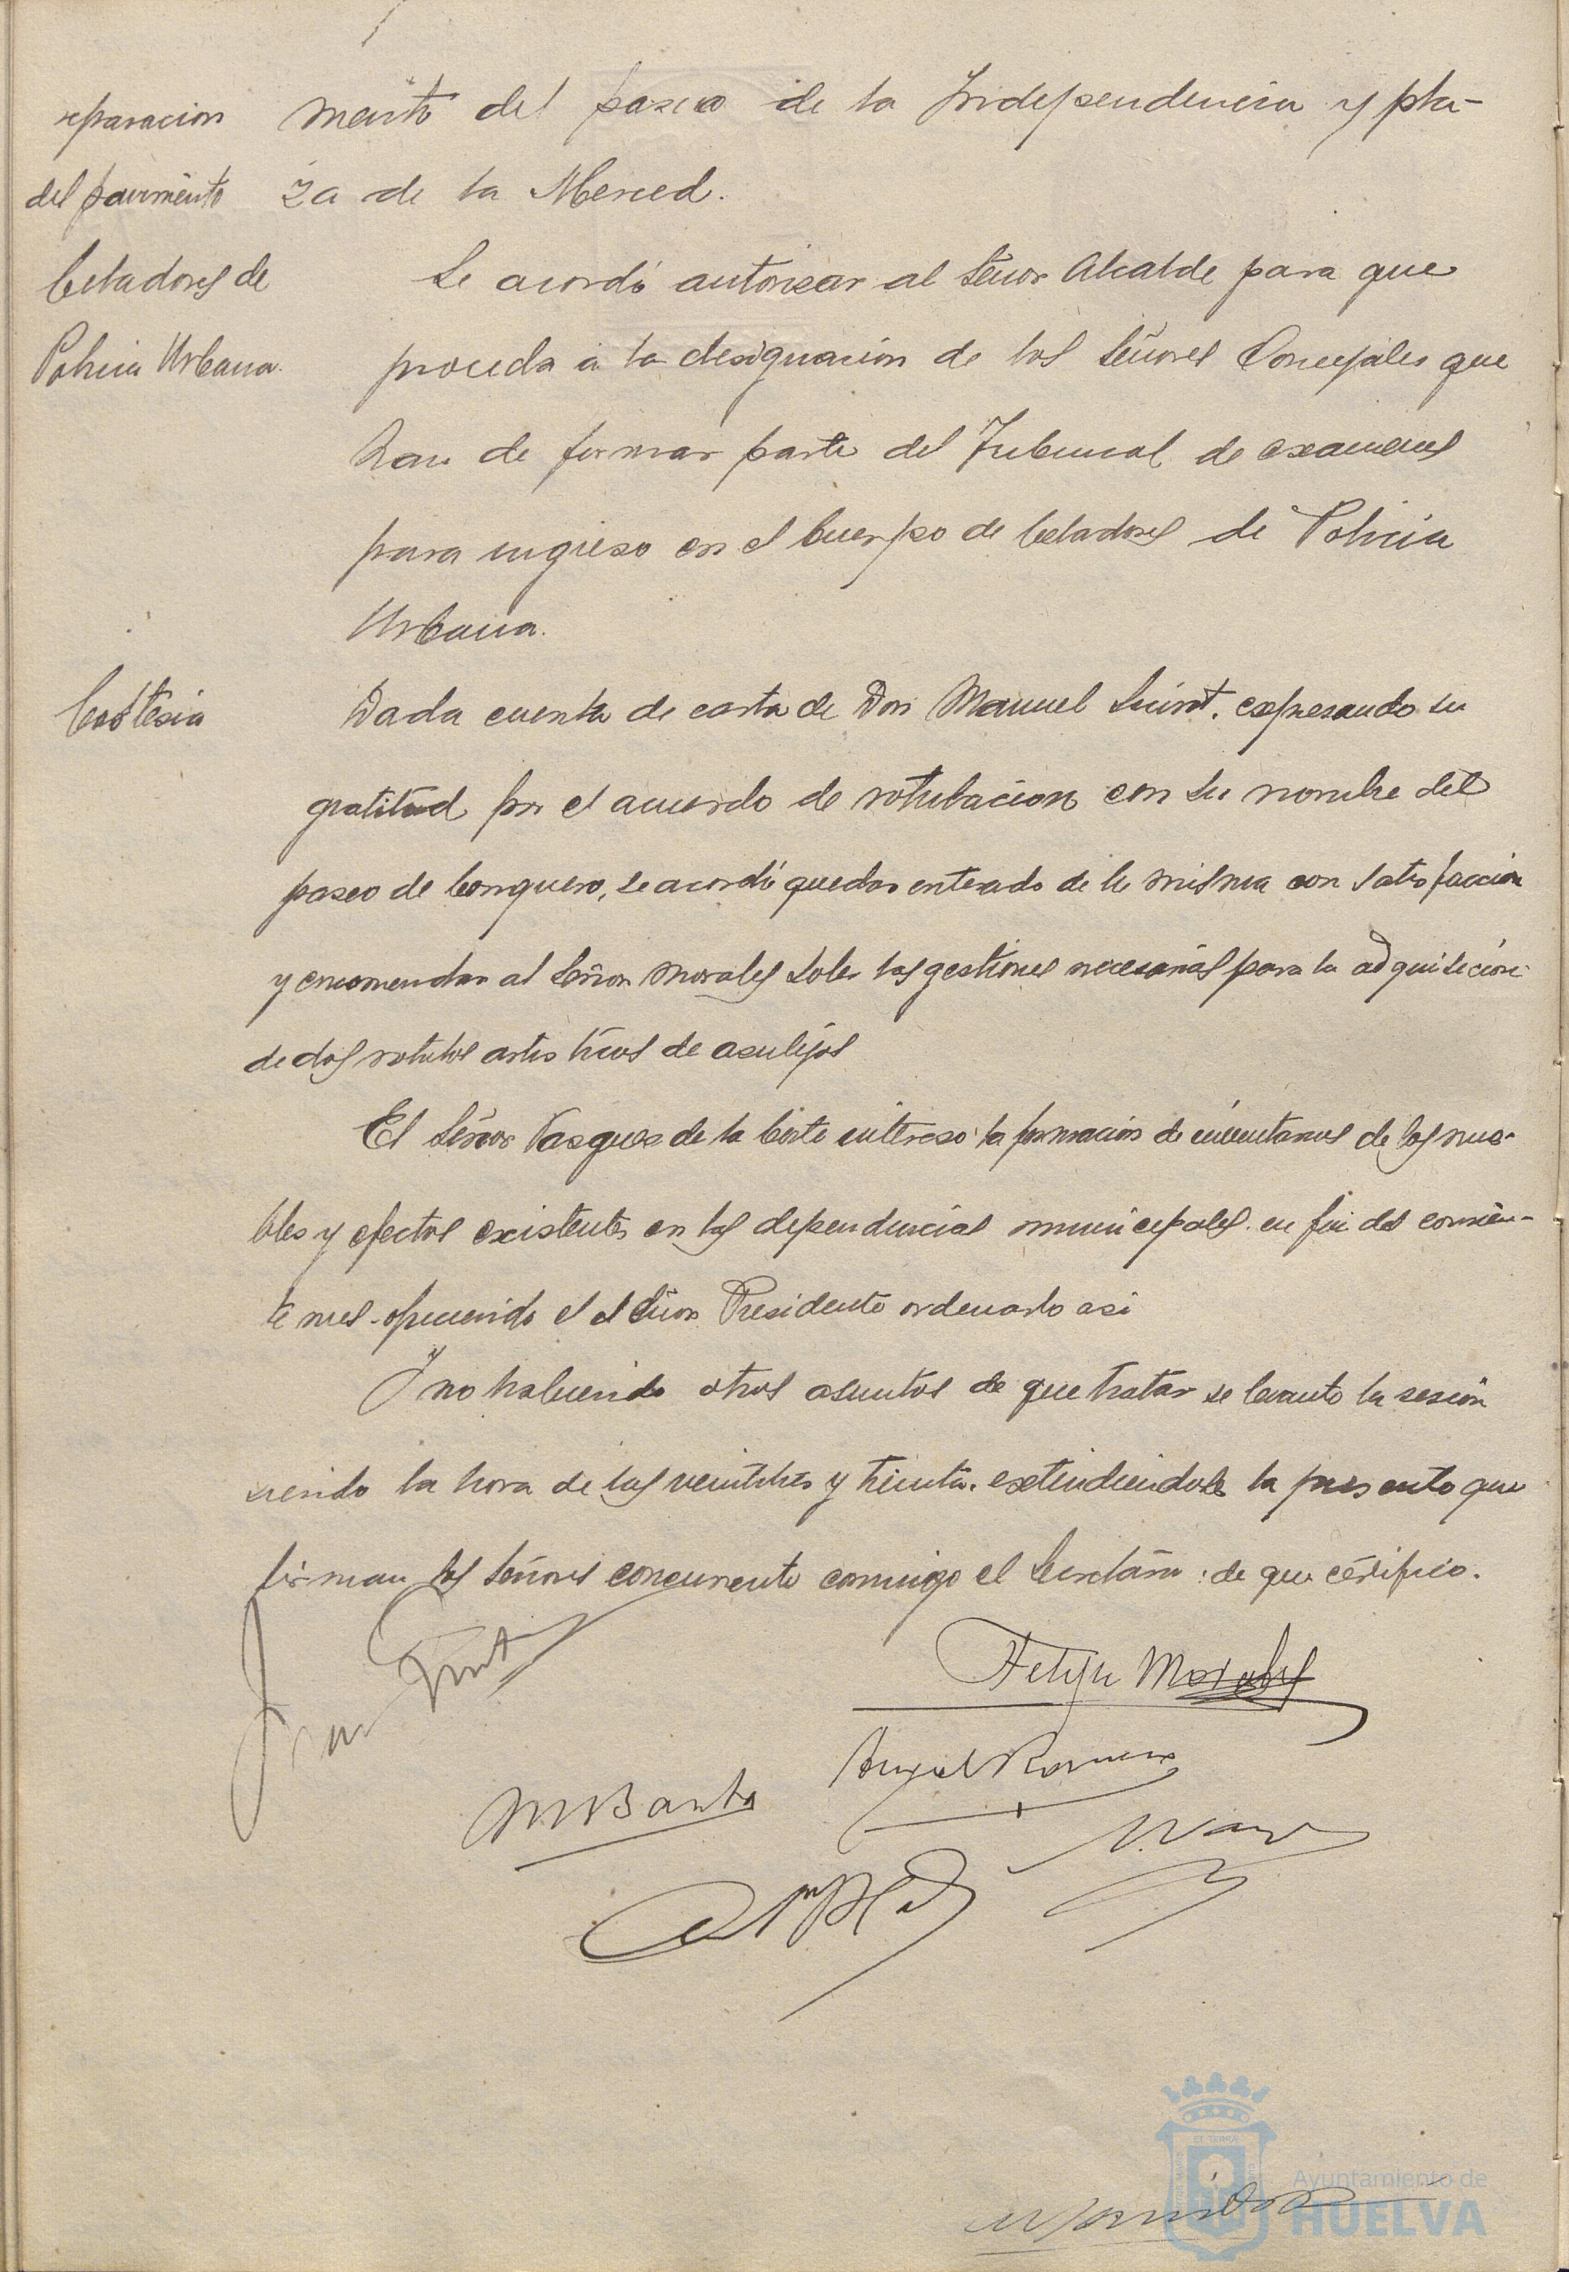 reparacion
del pavimento
mento del paseo de la Independencia y pla-
za de la Merced.
Celadores de
Policia Urbana.
Se acordó autorizar al Señor Alcalde para que
proceda a la designación de los Señores Concejales que
han de formar parte del Tribunal de examenes
para ingreso en el Cuerpo de Celadores de Policia
Urbana.
Cortesia
Dada cuenta de carta de Don Manuel Siurot, expresando su
gratitud por el acuerdo de rotulacion con su nombre del
paseo de Conquero, se acordó quedar enterado de la misma con satisfacción
y encomendar al Señor Morales Soler las gestiones necesarias para la adquisición
de dos rotulos artisticos de asulejos
El Señor Vasquez de la Corte intereso la formación de inventarios de los mue-
bles y efectos existentes en las dependencias municipales en fin del corrien-
te mes ofreciendo el Señor Presidente ordenarlo asi
Y no habiendo otros asuntos de que tratar se levanto la sesión
siendo la hora de las veintitres y treinta, extendiendose la presente que
firman los Señores concurrente conmigo el Secretario: de que certifico.
Felipe Morales
Angel Romero
Ayuntamiento de
HUELVA